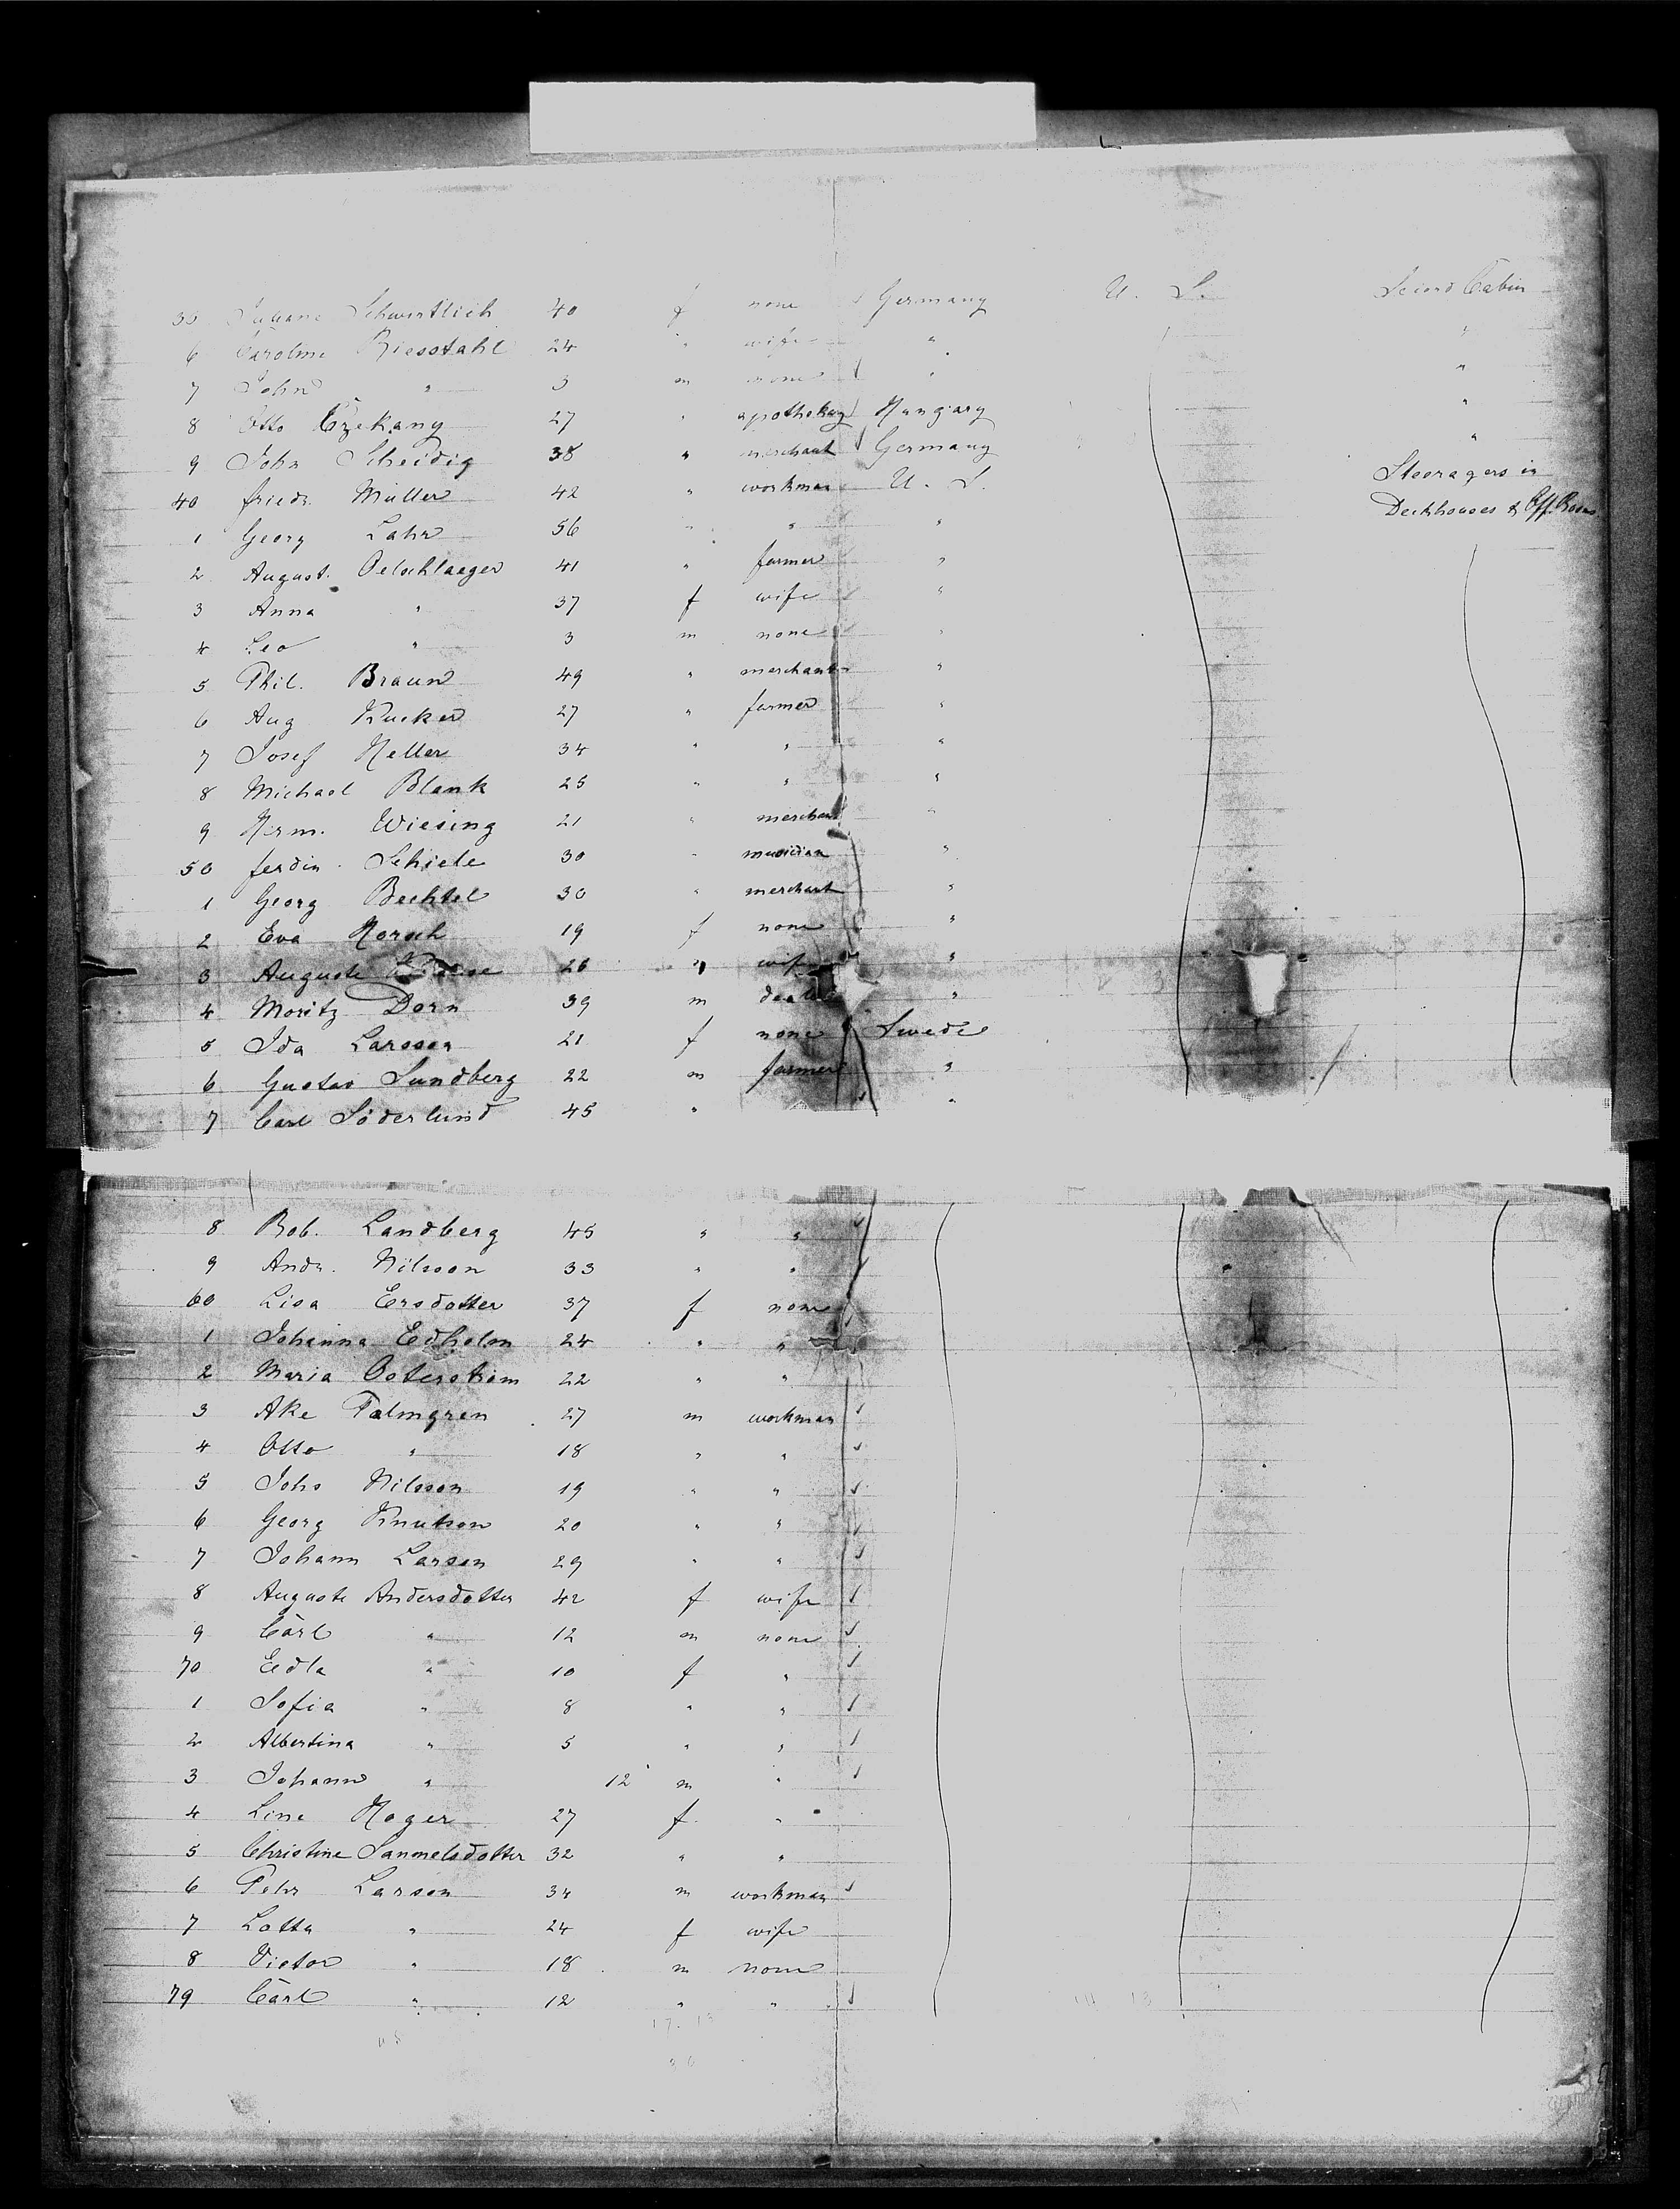 35 Juliane Schwertlich 40 f none Germany U. S. Second Cabin
6 Caroline Riesstahl 24 " wife " "
7 John " 3 m none " "
8 Otto Czekany 27 " apothekay Hungary "
9 John Scheidig 38 " merchant Germany "
40 friedr. Müller 42 " workman U. S. Steeragers in
1 Georg Lahr 56 " " " Deckhouses & Off. Rooms
2 August. Oelschlaeger 41 " farmer "
3 Anna " 37 f wife "
4 Leo " 3 m none "
5 Phil. Braun 49 " merchant "
6 Aug Kucker 27 " farmer "
7 Josef Heller 34 " " "
8 Michael Blank 25 " " "
9 Herm. Wiesing 21 " merchant "
50 ferdin. Schiele 30 " musician "
1 Georg Bechtel 30 " merchant "
2 Eva Horsch 19 f none "
3 Auguste 26 " wife "
4 Moritz Dorn 39 m dealer "
5 Ida Larsson 21 f none Swede
6 Gustav Sundberg 22 m farmer "
7 Carl Söderlund 45 " "
8 Rob. Landberg 45 " "
9 Andr. Nilsson 33 " "
60 Lisa Ersdotter 37 f none
1 Johanna Edholm 24 " "
2 Maria Osterström 22 " "
3 Ake Palmgren 27 m workman
4 Otto " 18 " "
5 Johs Nilsson 19 " "
6 Georg Knutson 20 " "
7 Johann Larsen 29 " "
8 Auguste Andersdotter 42 f wife
9 Carl " 12 m none
70 Edla " 10 f "
1 Sofia " 8 " "
2 Albertina " 5 " "
3 Johann " 12 m "
4 Line Hoger 27 f "
5 Christine Sanmelsdotter 32 " "
6 Pehr Larson 34 m workman
7 Lotta " 24 f wife
8 Victor " 18 m none
79 Carl " 12 " "